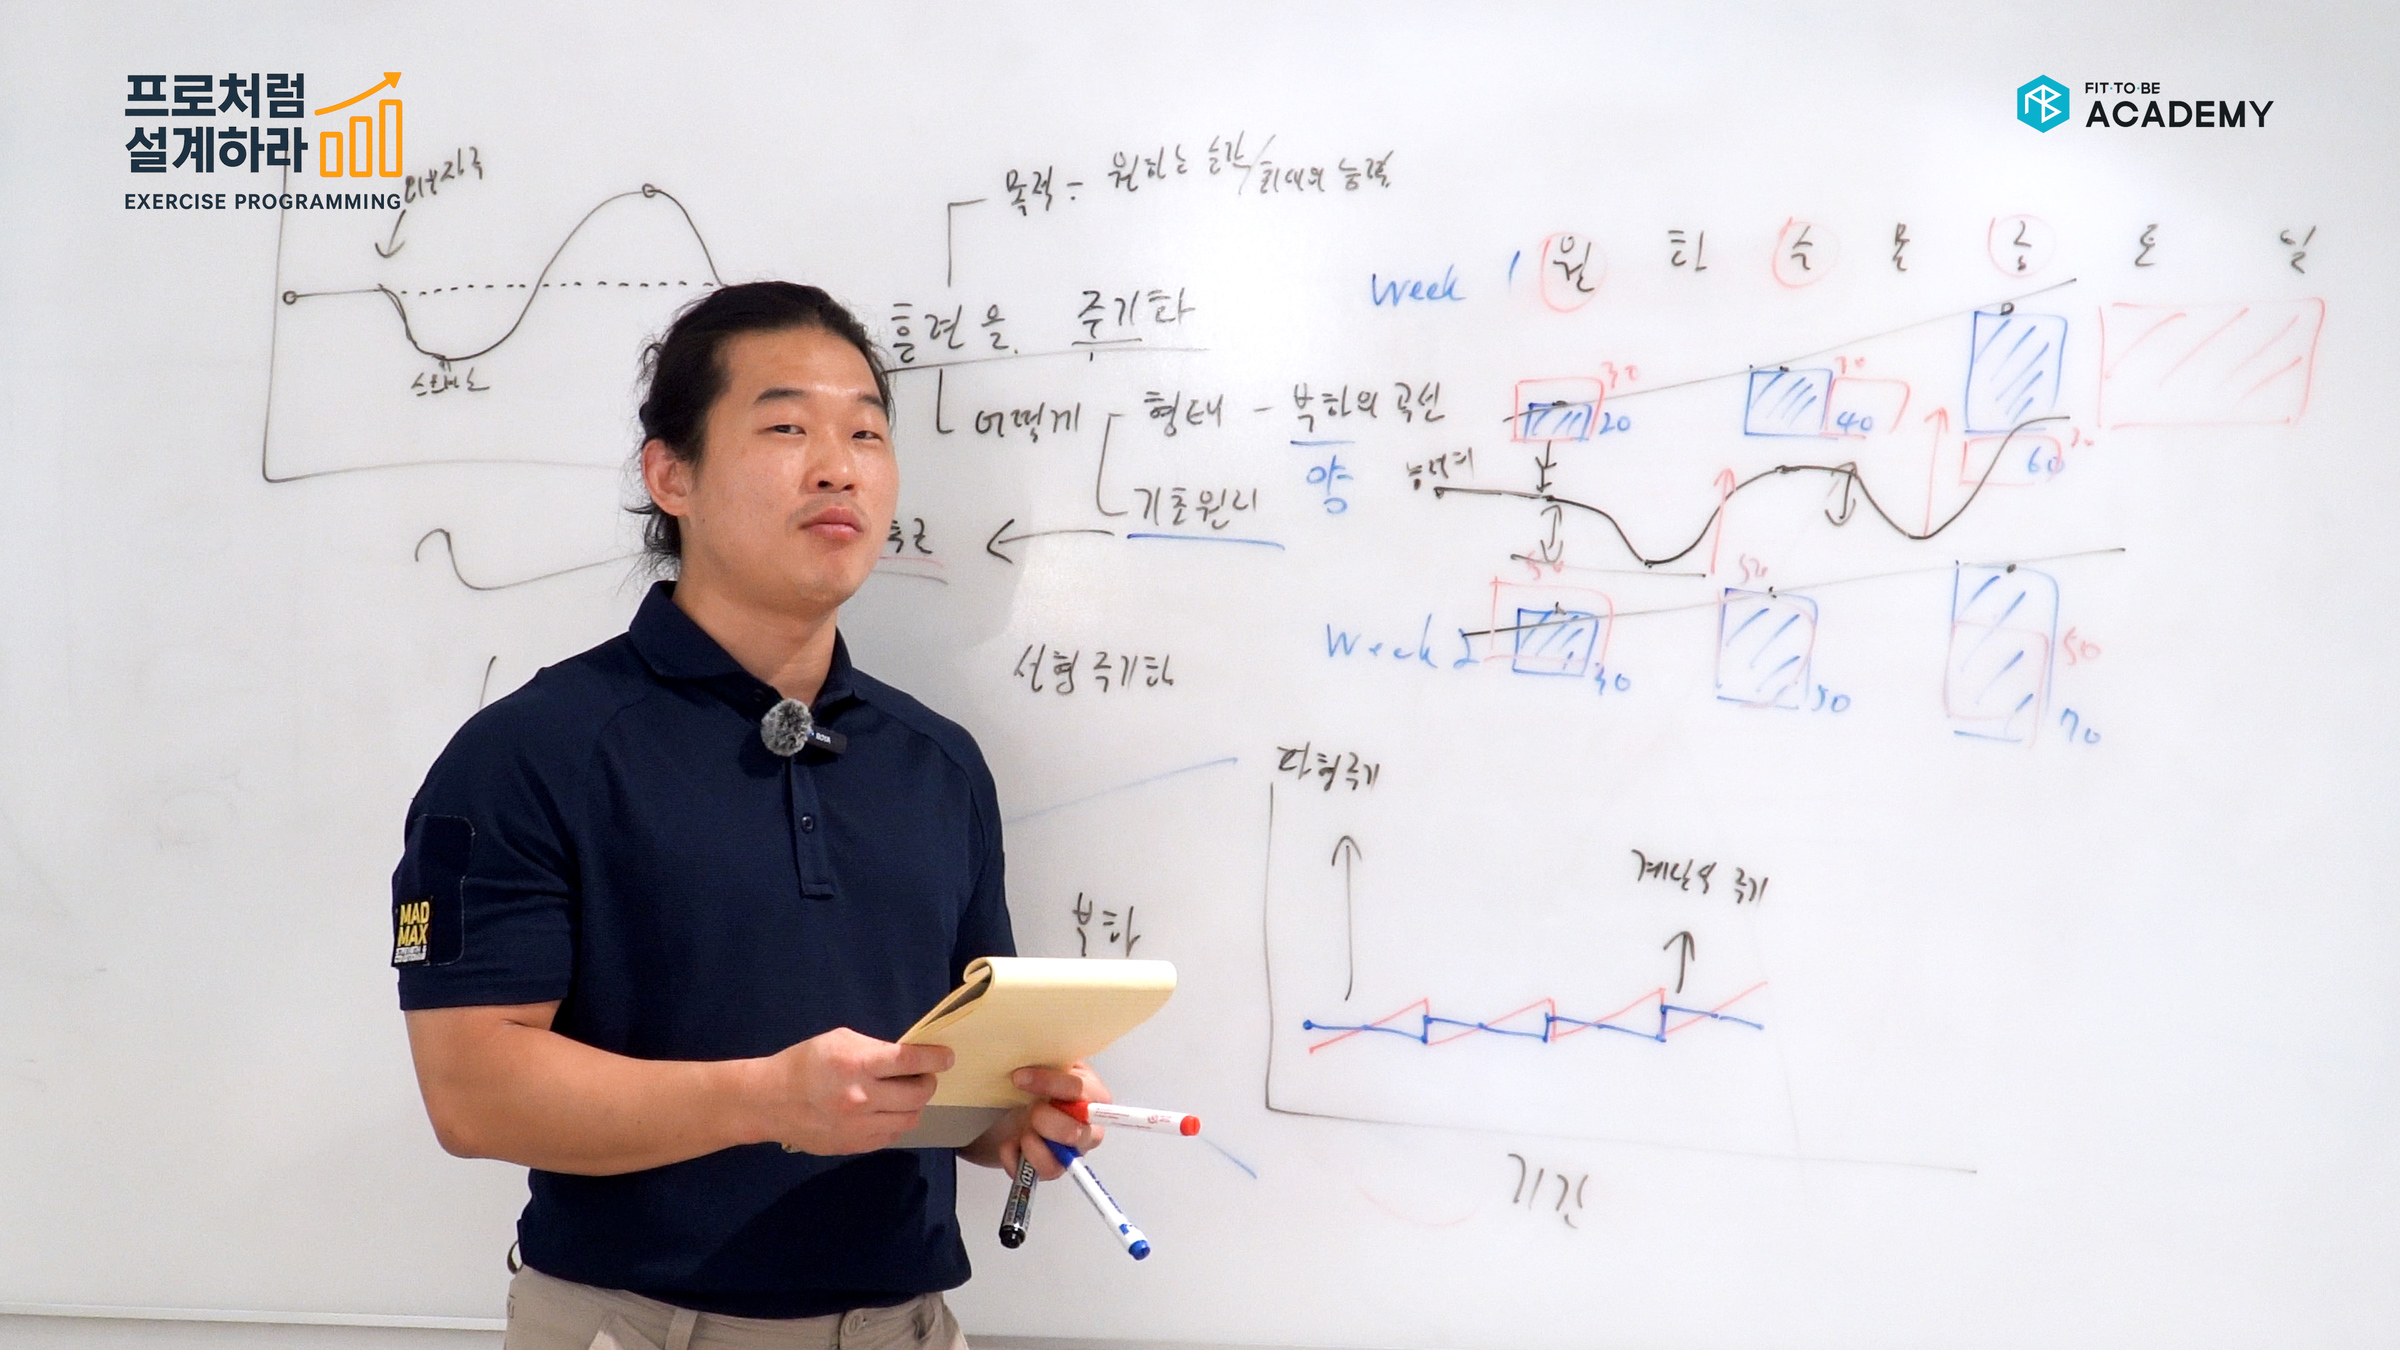 프로처럼
설계하라
EXERCISE PROGRAMMING
FIT·TO·BE
ACADEMY
목적 = 원하는 순간/최대의 능력
훈련을 주기화
어떻게
형태 - 부하의 곡선
양
기초원리
선형 주기화
부하
Week 1 월 화 수 목 금 토 일
30
20
30
40
60
Week 2
50
30
50
50
50
70
파형주기
계단식 주기
기간
MAD
MAX
BOYA